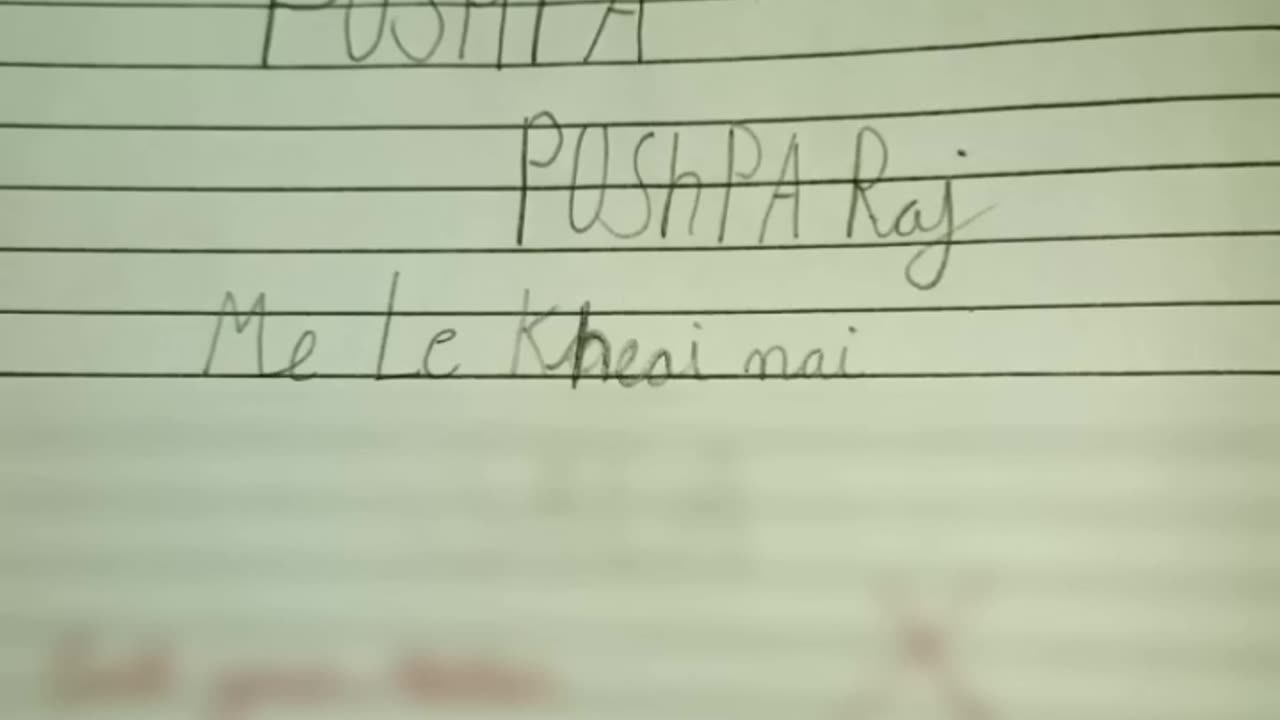 POSHPA
POShPA Raj
Me Le Kheai nai